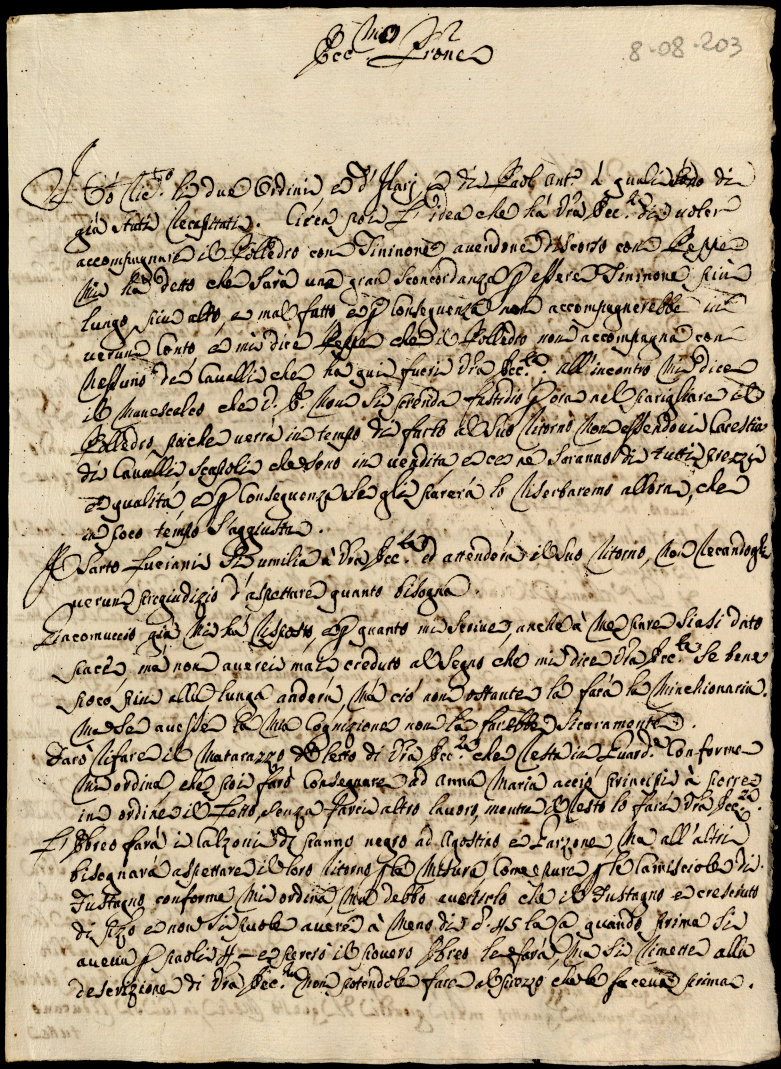 8-08-203
Ecc.mo P.rone
Hò Ric.to le due Ordini e d'Ilarj, e di Paol Ant.o li quali sono di
già stati recapitati. Circa poi l'idea che hà Vra Ecc.za di voler
accompagnare il Polledro con Tininone avendone discorso con Peppe
Mi hà detto che sarà una gran sconcordanza p essere Tininone più
lungo, più alto, e mal fatto e p conseguenza non accompagnerebbe in
verun conto e mi dice Peppe che il Polledro non accompagna con
Nessuno de Cavalli che ha qui fuori Vra Ecc.za. All'incontro Mi dice
il Manescalco che V. E. Non si prenda fastidio p ora nel parigliare il
Polledro, poiche verrà in tempo di farlo al Suo ritorno Non essendovi Carestia
di Cavalli Scapoli che sono in vendita e ce ne saranno di tutti prezzi
e qualità, e p Conseguenza Se gli parerà lo riserbaremo allora, che
in poco tempo s'aggiusta.
Il Sarto Lueriani S'umilia à Vra Ecc.za ed attenderà il Suo ritorno, Non recandogli
verun pregiudizio d'aspettare quanto bisogna.
Giacomuccio già Mi hà risposto, e p quanto mi scrive, anche à Me pare siasi dato
pace, mà non averei mai creduto al segno che mi dice Vra Ecc.za Se bene
poco più alla lunga anderà, Mà ciò non ostante la farà la Minchionaria.
Ma se avesse la Mia Cognizione non la farebbe sicuramente.
Farò rifare il Matarazzo del letto di Vra Ecc.za che resta in Guard.a Conforme
Mi ordina, che poi farò consegnare ad Anna Maria acciò principi à porre
in ordine il Letto, senza farci altro lavoro, mentre il resto lo farà Vra Ecc.za.
L'Ebreo farà i Calzoni di panno negro ad Agostino e Garzone, Ma all'altri
bisognarà aspettare il loro ritorno p la Misura, Come pure p le Camisciole di
Fustagno conforme Mi ordina, Ma debbo avertirlo che il Fustagno è cresciuto
di prezzo e non si puole avere à Meno di 45 la quando prima si
aveva p paoli 4 - e perciò il povero Ebreo le farà, Ma si rimette alla
descrizione di Vra Ecc.za Non potendole fare al prezzo che le faceva prima.